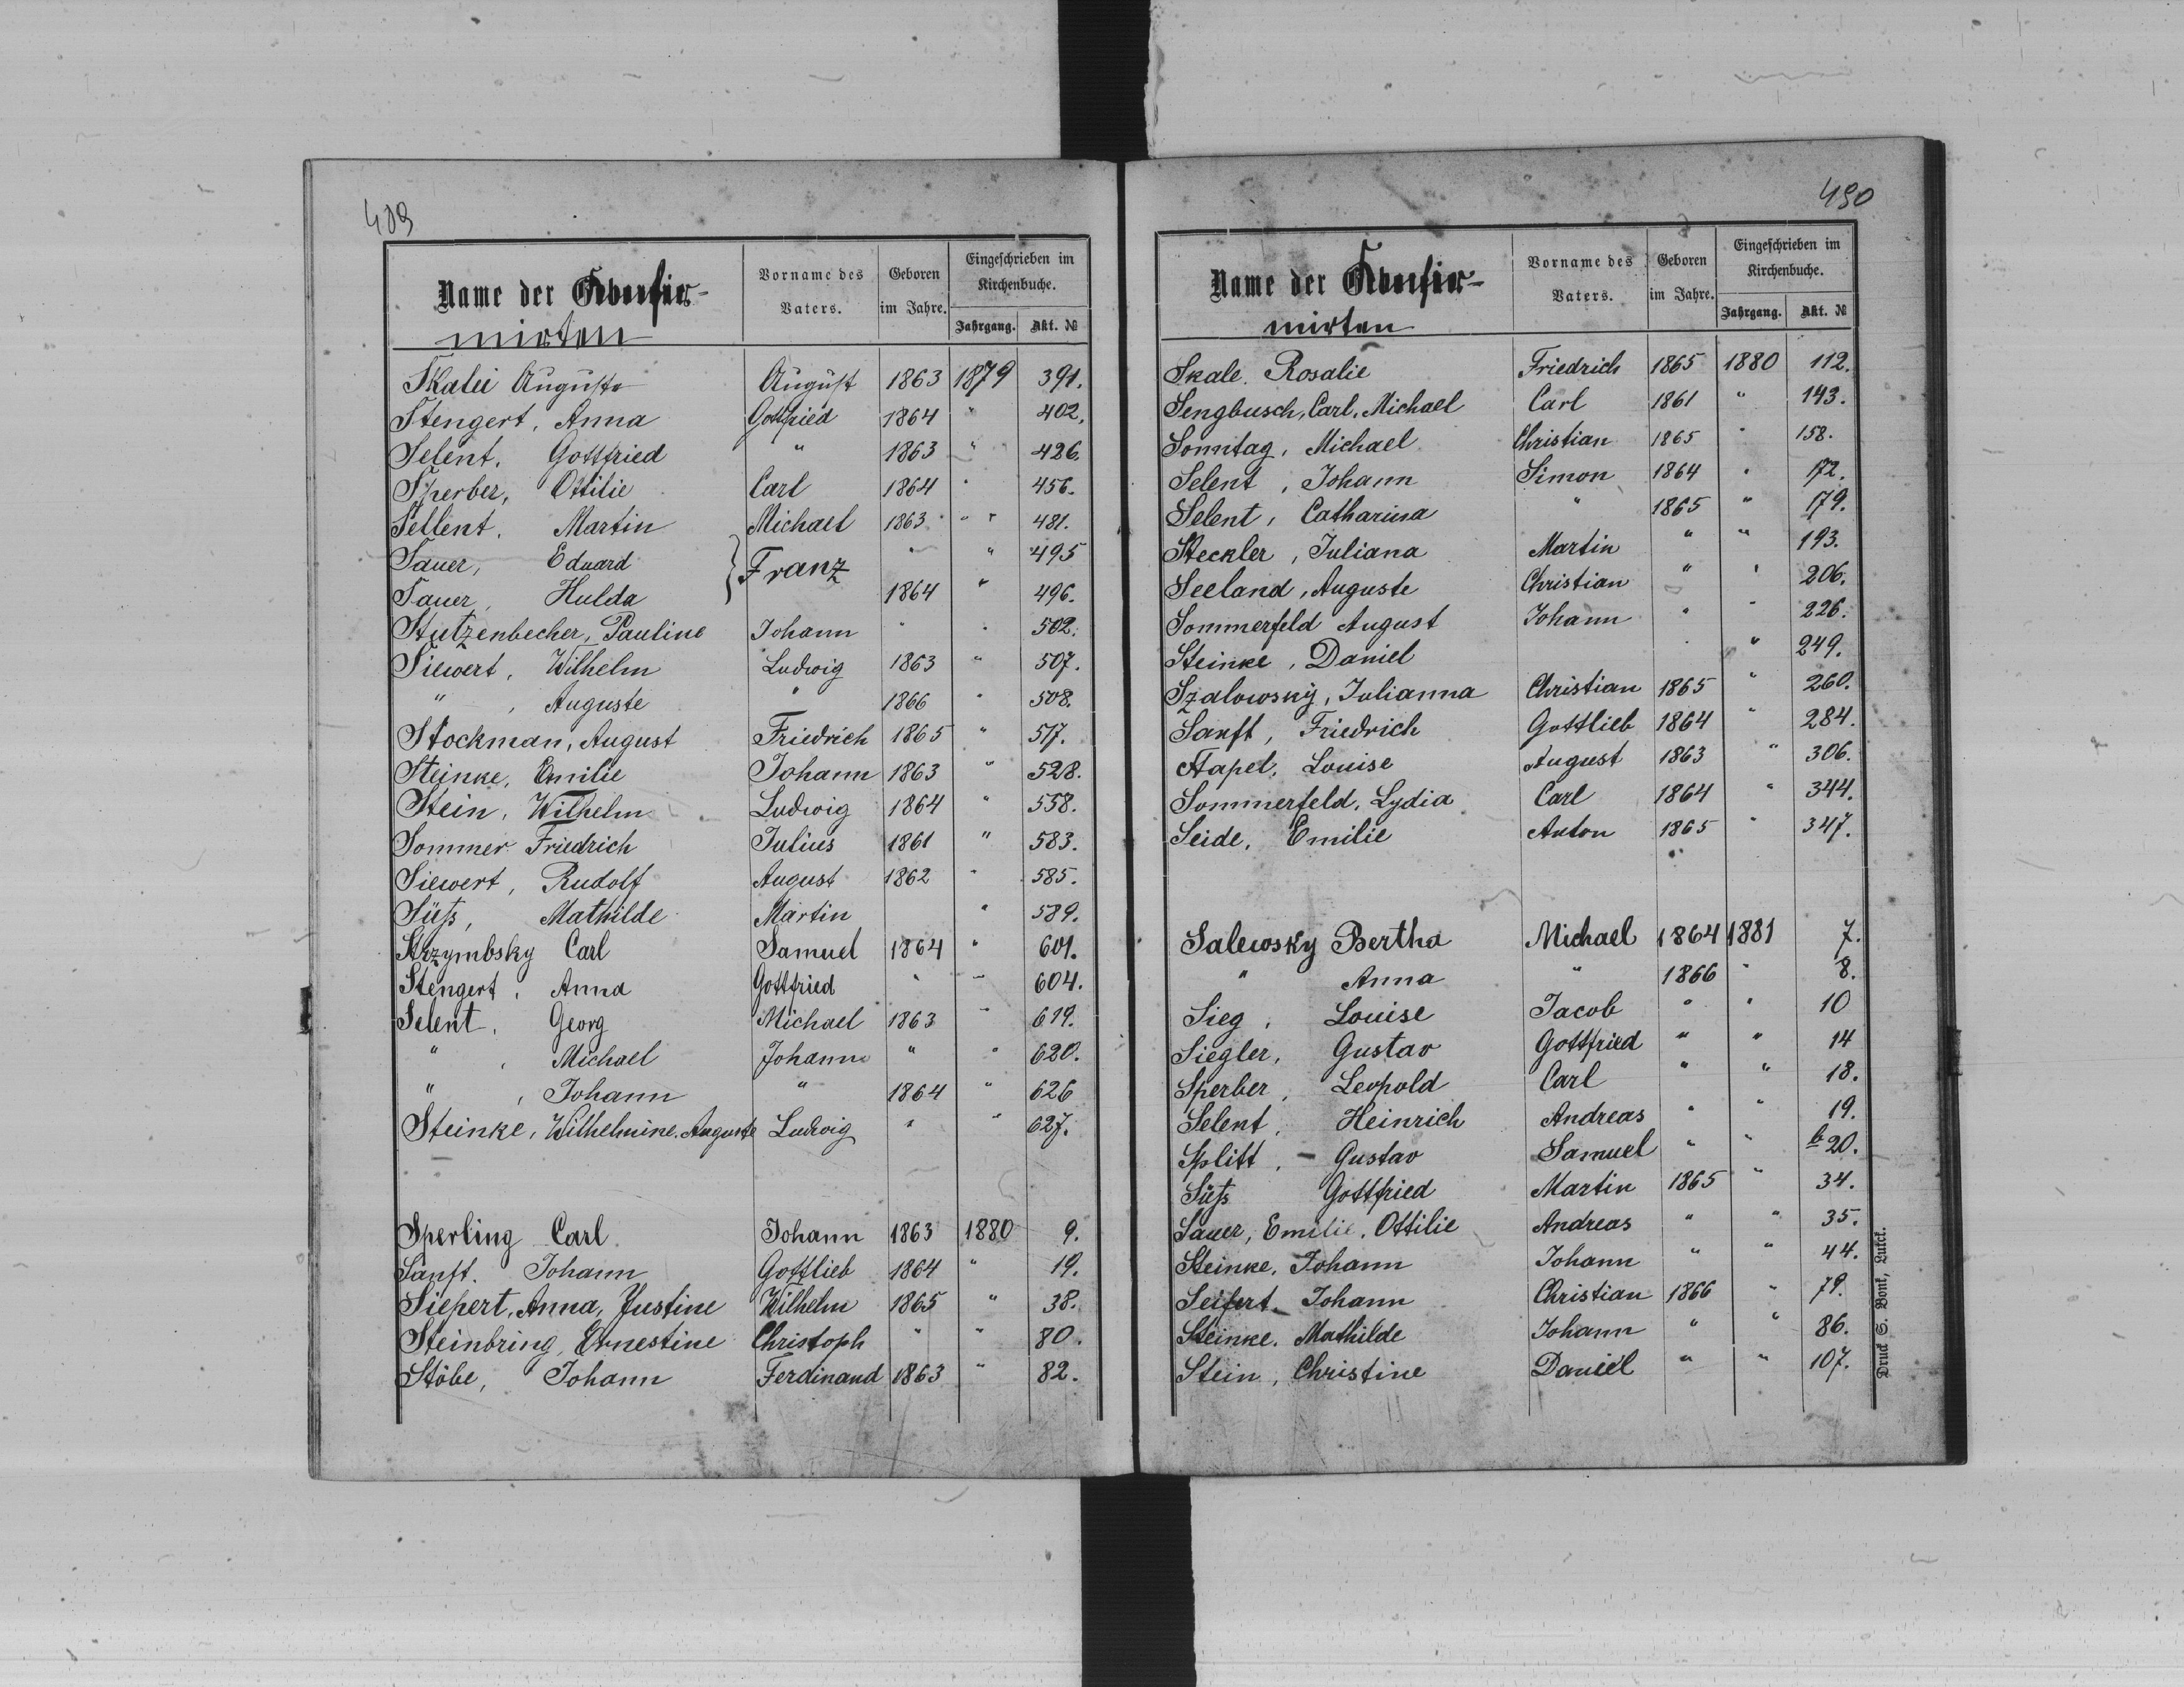 489
Name der Confir-
mirten
Vorname des Vaters.
Geboren im Jahre.
Eingeschrieben im Kirchenbuche.
Jahrgang. Akt. №
Skalei Auguste August 1863 1879 391.
Stengert, Anna Gottfried 1864 " 402.
Selent, Gottfried " 1863 " 426.
Sperber, Ottilie Carl 1864 " 456.
Sellent, Martin Michael 1863 " " 481.
Sauer, Eduard } Franz " " 495
Sauer, Hulda 1864 " 496.
Stutzenbecher, Pauline Johann " " 502.
Siewert, Wilhelm Ludwig 1863 " 507.
" , Auguste " 1866 " 508.
Stockman, August Friedrich 1865 " 517.
Steinke, Emilie Johann 1863 " 528.
Stein, Wilhelm Ludwig 1864 " 558.
Sommer Friedrich Julius 1861 " 583.
Siewert, Rudolf August 1862 " 585.
Süß, Mathilde Martin " 589.
Strzymbsky Carl Samuel 1864 " 601.
Stengert, Anna Gottfried " " 604.
Selent, Georg Michael 1863 " 619.
" , Michael Johann " " 620.
" , Johann " 1864 " 626
Steinke, Wilhelmine. Auguste Ludwig " " 627.
Sperling Carl Johann 1863 1880 9.
Sanft. Johann Gottlieb 1864 " 19.
Siepert, Anna, Justine Wilhelm 1865 " 38.
Steinbring, Ernestine Christoph " " 80.
Stöbe, Johann Ferdinand 1863 " 82.
490
Name der Confir-
mirten
Vorname des Vaters.
Geboren im Jahre.
Eingeschrieben im Kirchenbuche.
Jahrgang. Akt. №
Skale. Rosalie Friedrich 1865 1880 112.
Sengbusch, Carl, Michael Carl 1861 " 143.
Sonntag, Michael Christian 1865 " 158.
Selent, Johann Simon 1864 " 172.
Selent, Catharina " 1865 " 179.
Steckler, Juliana Martin " " 193.
Seeland, Auguste Christian " " 206.
Sommerfeld August Johann " " 226.
Steinke, Daniel " " 249.
Szalowsky, Julianna Christian 1865 " 260.
Sanft, Friedrich Gottlieb 1864 " 284.
Stapel, Louise August 1863 " 306.
Sommerfeld, Lydia Carl 1864 " 344.
Seide, Emilie Anton 1865 " 347.
Salewsky Bertha Michael 1864 1881 7.
" Anna " 1866 " 8.
Sieg, Louise Jacob " " 10
Siegler, Gustav Gottfried " " 14
Sperber, Leopold Carl " " 18.
Selent, Heinrich Andreas " " 19.
Splitt, - Gustav Samuel " " b 20.
Süß Gottfried Martin 1865 " 34.
Sauer, Emilie. Ottilie Andreas " " 35.
Steinke, Johann Johann " " 44.
Seifert. Johann Christian 1866 " 79.
Steinke. Mathilde Johann " " 86.
Stein, Christine Daniel " " 107.
Druck S. Bonk, Lutck.